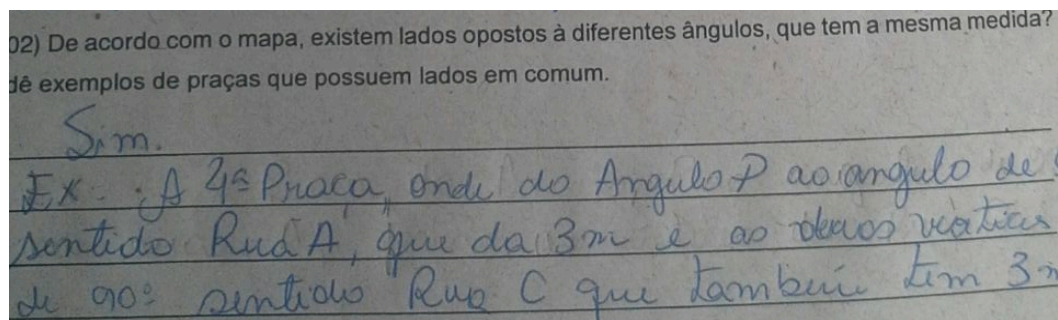 02) De acordo com o mapa, existem lados opostos à diferentes ângulos, que tem a mesma medida?
dê exemplos de praças que possuem lados em comum.
Sim.
Ex.: A 4ª Praça, onde do Angulo P ao angulo de
sentido Rua A, que da 3m e ao vertice
de 90º sentido Rua C que também tem 3m